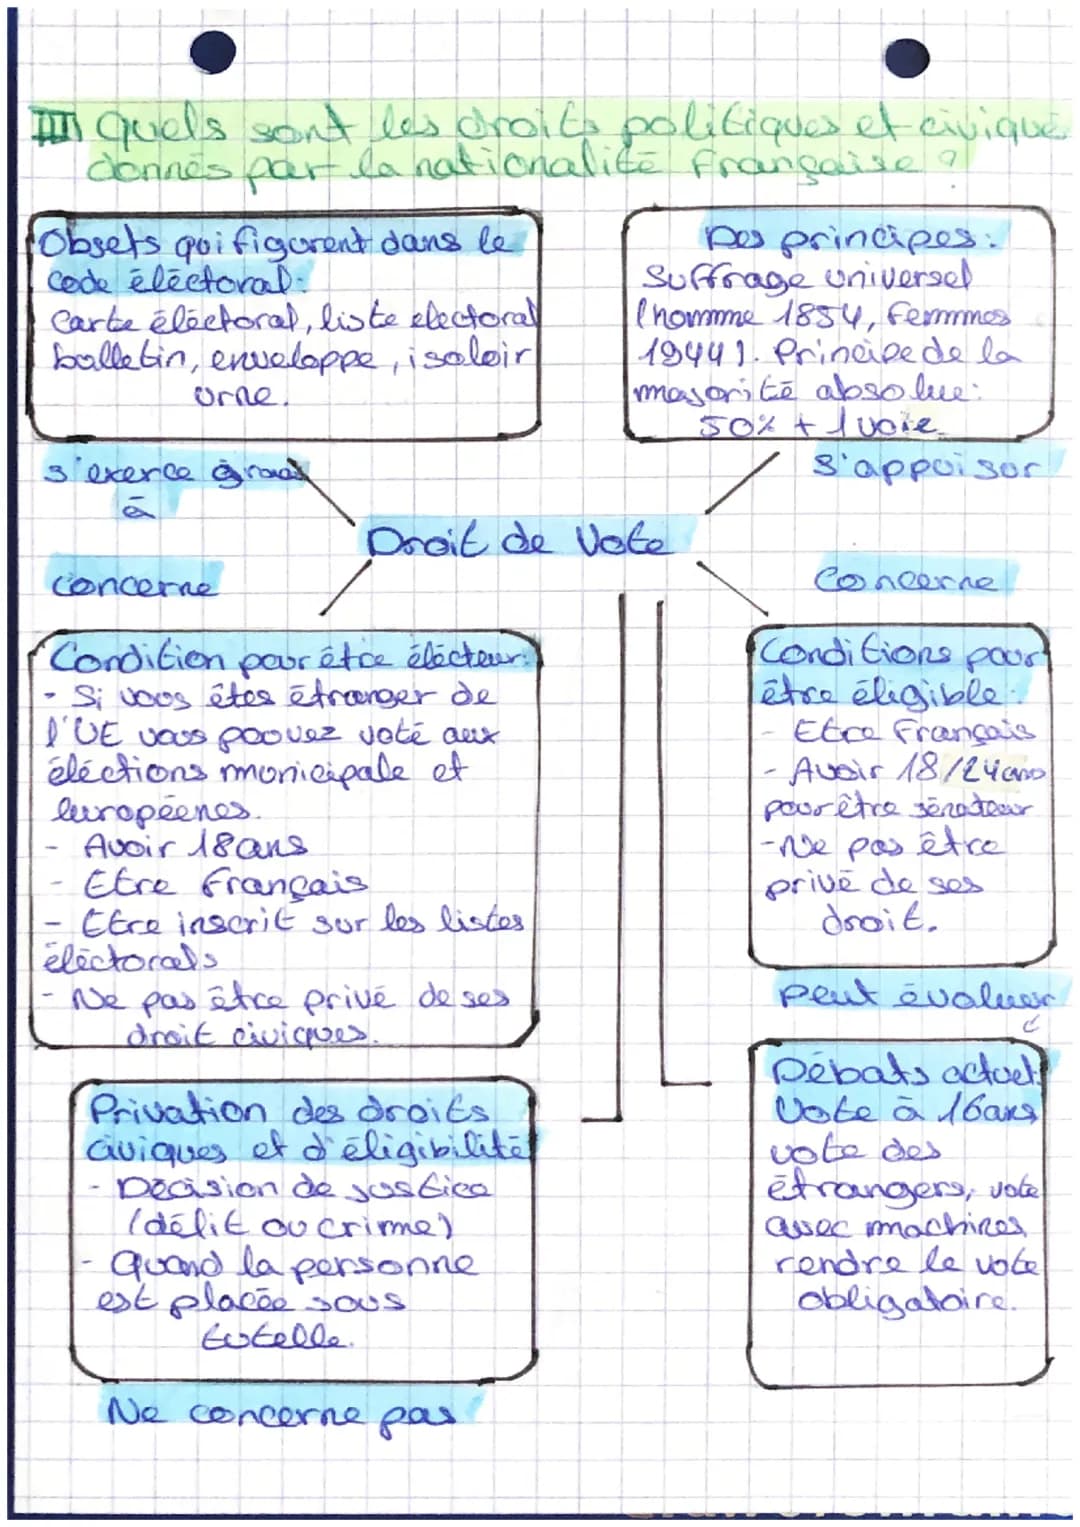 III Quels sont les droits politiques et civique
donnés par la nationalité Française ?
Objets qui figurent dans le
code éléctoral:
Carte éléctoral, liste electoral
balletin, enveloppe, isoloir
urne.
Des principes:
Suffrage universel
(homme 1854, femmmes
1944). Principe de la
majorité absolue:
50% + 1 voie.
s'exerce grace
à
s'appui sur
Droit de Vote
concerne
Concerne
Condition pour être élécteur:
- Si vous êtes étranger de
l'UE vous pouvez voté aux
éléctions municipale et
européenes.
- Avoir 18ans
- Etre Français
- Etre inscrit sur les listes
éléctorals
- Ne pas être privé de ses
droit civiques.
Conditions pour
être éligible:
- Etre Français
- Avoir 18/24ans
pour être sénateur
- Ne pas être
privé de ses
droit.
Peut évaluer
Privation des droits
civiques et d'éligibilité
- Décision de justice
(délit ou crime)
- Quand la personne
est placée sous
tutelle.
Ne concerne pas
Débats actuel:
Vote à 16ans
vote des
étrangers, vote
avec machines,
rendre le vote
obligatoire.